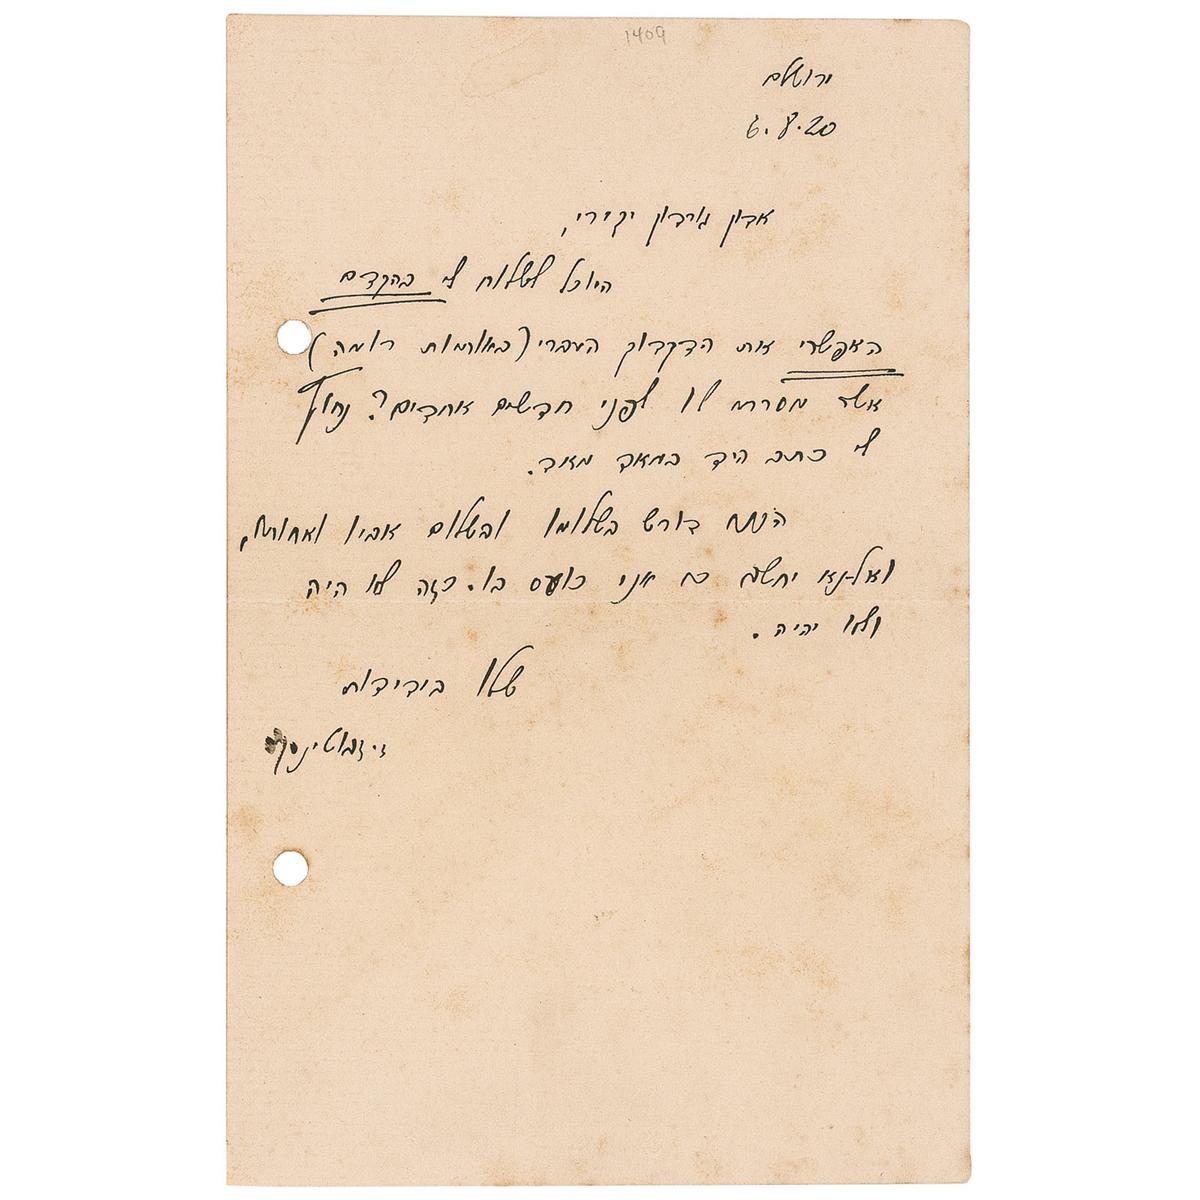 1409
ירושלים
6.8.20
אדון גורדון יקירי,
היוכל לשלוח לי בהקדם
האפשרי את הדקדוק העברי (באותיות רומה)
אשר מסרתי לו לפני חדשים אחדים? נחוץ
לי כתב היד במאד מאד.
הנני דורש בשלומו ובשלום אביו ואחותו,
ואל-נא יחשב כי אני כועס בו. כזה לא היה
ולא יהיה.
שלו בידידות
ז. ז'בוטינסקי